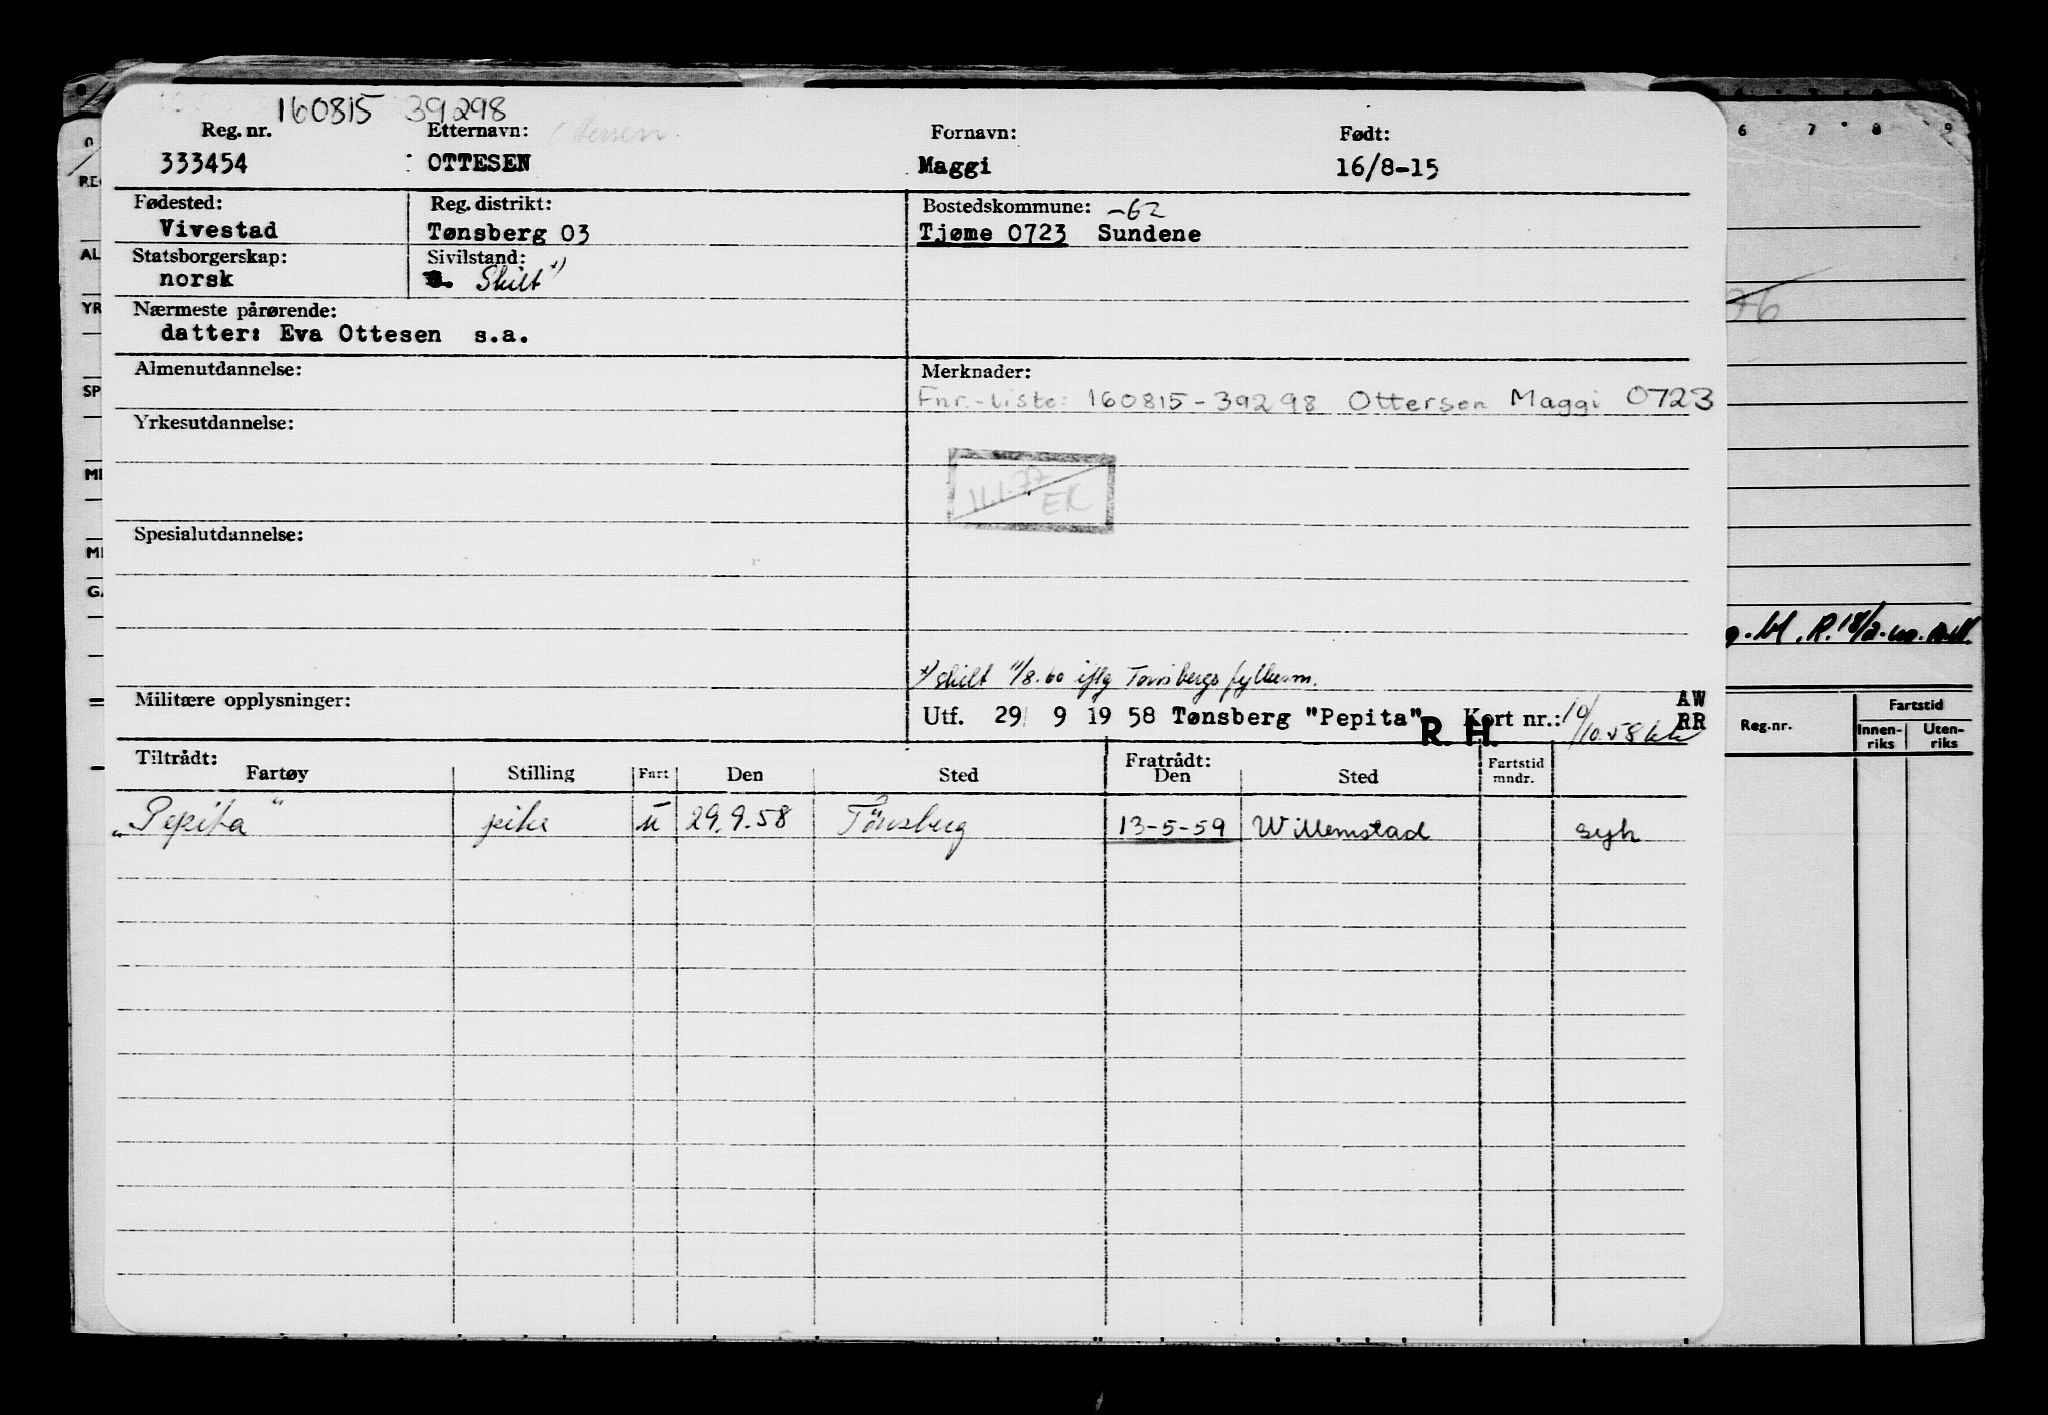 160815 39298
Reg. nr. Etternavn: Fornavn: Født:
333454 OTTESEN Maggi 16/8-15
Fødested: Reg. distrikt: Bostedskommune: -62
Vivestad Tønsberg 03 Tjøme 0723 Sundene
Statsborgerskap: Sivilstand:
norsk Skilt *)
Nærmeste pårørende:
datter: Eva Ottesen s.a.
Almenutdannelse: Merknader:
Fnr.-liste: 160815-39298 Ottersen Maggi 0723
Yrkesutdannelse:
11.1.77
EK
Spesialutdannelse:
*) skilt 11/8.60 iflg Tønsbergs fylkesm.
Militære opplysninger: Utf. 29 9 19 58 Tønsberg "Pepita" R. H. Kort nr.: 10/10.58
AW
RR
Tiltrådt: Fratrådt:
Fartøy Stilling Fart Den Sted Den Sted Fartstid mndr.
"Pepita" pike u 29.9.58 Tönsberg 13-5-59 Willemstad syk
0 6 7 8 9
REG
AL
YR
76
SP
ME
MI
GA
R. 18/2
Reg.nr. Fartstid
Innen-riks Uten-riks